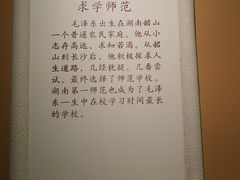 求学师范
毛泽东出生在湖南韶山
一个普通农民家庭。他从小
志存高远，求知若渴。从韶
山到长沙后，他积极探求人
生道路，几经犹疑，几番尝
试，最终选择了师范学校。
湖南第一师范也成为了毛泽
东一生中在校学习时间最长
的学校。